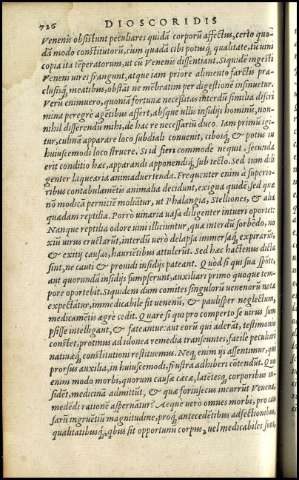 726 DIOSCORIDIS
Venenis obsistunt peculiares quidā corporū affectus, certo quo-
dā modo constitutorū, cum quadā cibi potusq́; qualitate, tū vim
copia ita tēperatorum, ut cū Venenis dissentiant. Siquidē ingesti
Veneni vires frangunt, atque iam priore alimento farctis præ-
clusisq́; meatibus, obstāt ne mēbratim per digestionē insinuetur.
Verū enimuero, quoniā fortuitæ necessitas interdū similia discri-
mina peregrè agētibus affert, absque ullis insidijs hominū, non-
nihil differendū mihi, de hac re necessariū duco. Iam primū igi-
tur, culinā apparare loco subdiali conuenit, cibosq́; & potus in
huiuscemodi loco struere. Si id fieri commodè nequit, secunda
erit conditio hæc, apparandi apponendiq́; sub tecto. Sed tum dili-
genter laquearia animaduertenda. Frequenter enim è superio-
ribus contabulamētis animalia decidunt, exigua quidē, sed quæ
nō modicā perniciē moliātur, ut Phalangia, Stelliones, & alia
quædam reptilia. Porrò uinaria uasa diligenter intueri oportet:
Nanque reptilia odore uini alliciuntur, quæ interdū sorbēdo, no
xiū uirus eructarūt, interdū uerò delapsa immersaq́; expirarūt,
& exitij causas, haurientibus attulerūt. Sed hæc hactenus dicta
sint, ne cauti & prouidi insidijs pateant. Quòd si qui sua spōte,
aut quorundā insidijs sumpserunt, auxiliari primo quoque tem-
pore oportebit. Siquidem dum comites singulorū uenenorū notæ
expectātur, immedicabile fit uenenū, & paulisper neglectum,
medicamētis ægrè cedit. Quare si quo pro comperto se uirus sum
psisse intelligant, & fateantur: aut eorū qui aderāt, testimonio
constet, protinus ad idonea remedia transeuntes, facile peculiari
naturæq́; constitutioni restituemus. Neq́; enim ijs assentimur, qui
prorsus auxilia, in huiuscemodi, frustra adhiberi cōtendūt. Quis
enim modo morbis, quorum causa cæca, latēsq́; corporibus in-
sidet, medicina admittit, & quæ forinsecus incurrūt Veneni,
medēdi ratione aspernatur? Aeque uero omnes morbis, pro cau
sarū ingruētiū magnitudine, proq́; antecedētibus adfectionibus,
qualitatibusq́; quibus sit opportunū corpus, uel medicabiles sunt,